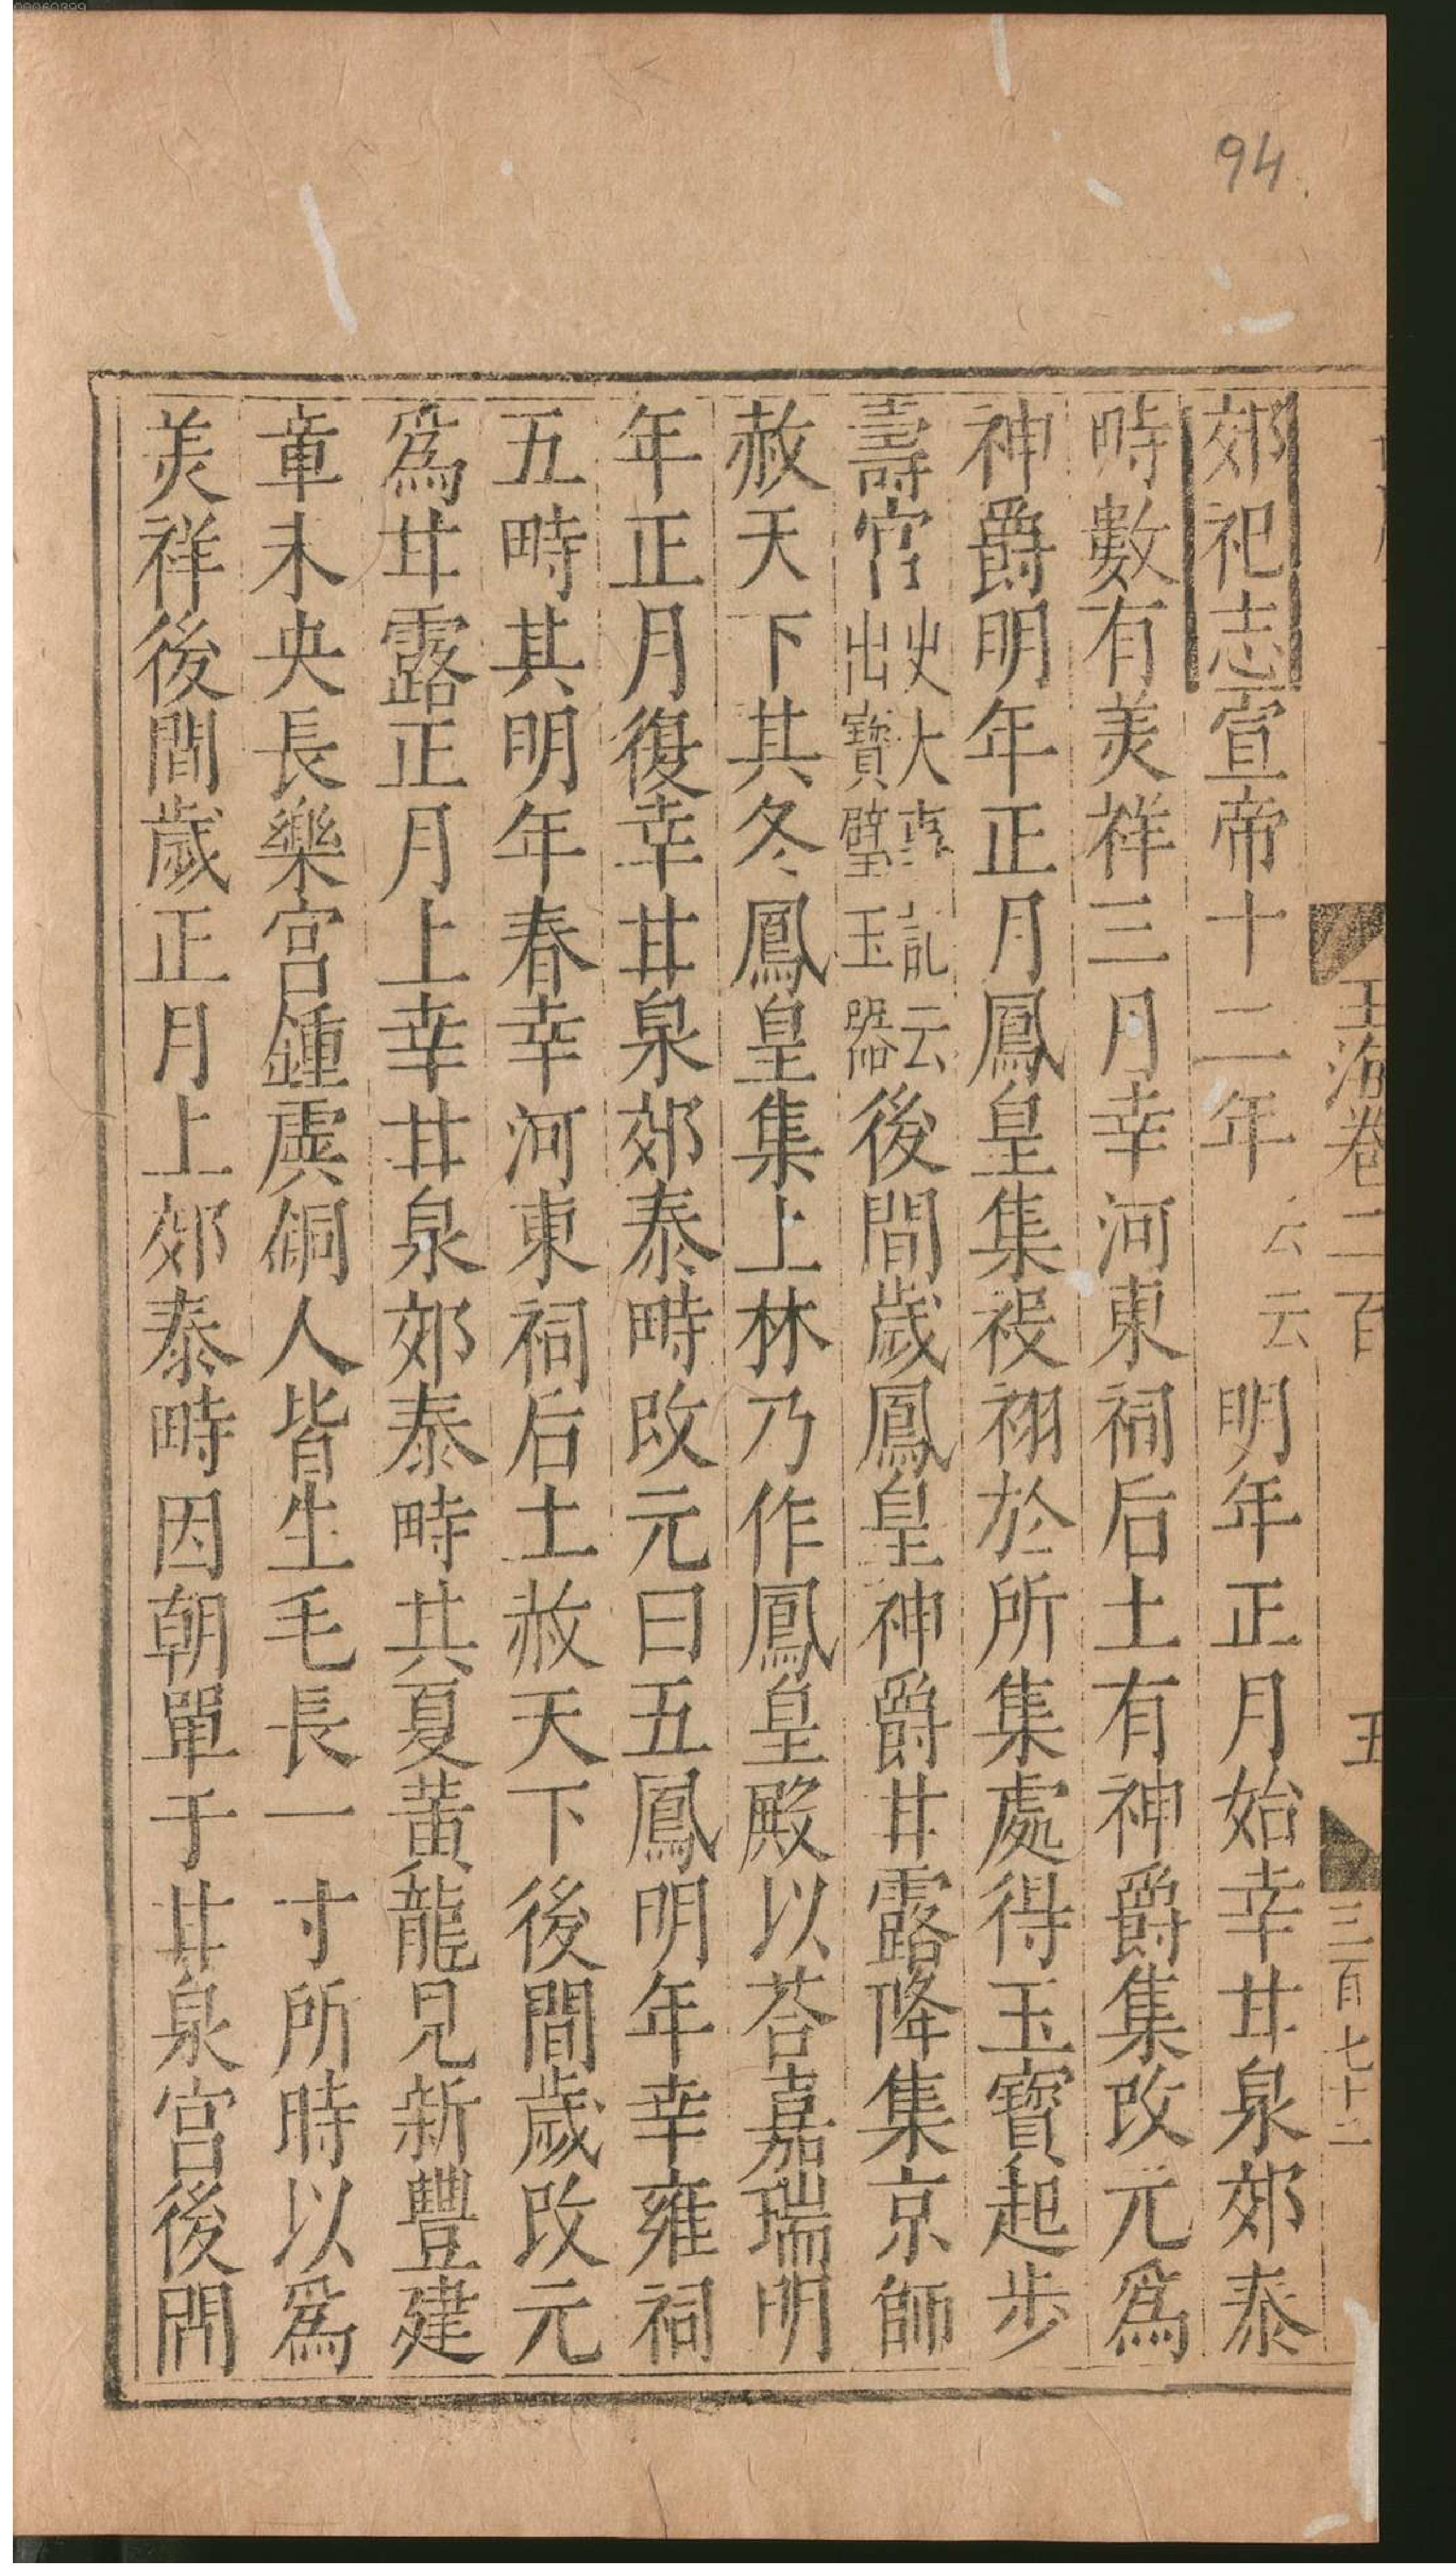 94
玉海卷二百 五 三百七十二
郊祀志宣帝十二年云云明年正月始幸甘泉郊泰
畤數有美祥三月幸河東祠后土有神爵集改元爲
神爵明年正月鳳皇集祋祤於所集處得玉寶起步
壽宫史大事記云出寶璧玉器後間歲鳳皇神爵甘露降集京師
赦天下其冬鳳皇集上林乃作鳳皇殿以荅嘉瑞明
年正月復幸甘泉郊泰畤改元曰五鳳明年幸雍祠
五畤其明年春幸河東祠后土赦天下後間歲改元
爲甘露正月上幸甘泉郊泰畤其夏黃龍見新豐建
章未央長樂宫鍾虡銅人皆生毛長一寸所時以爲
美祥後間歲正月上郊泰畤因朝單于甘泉宫後間